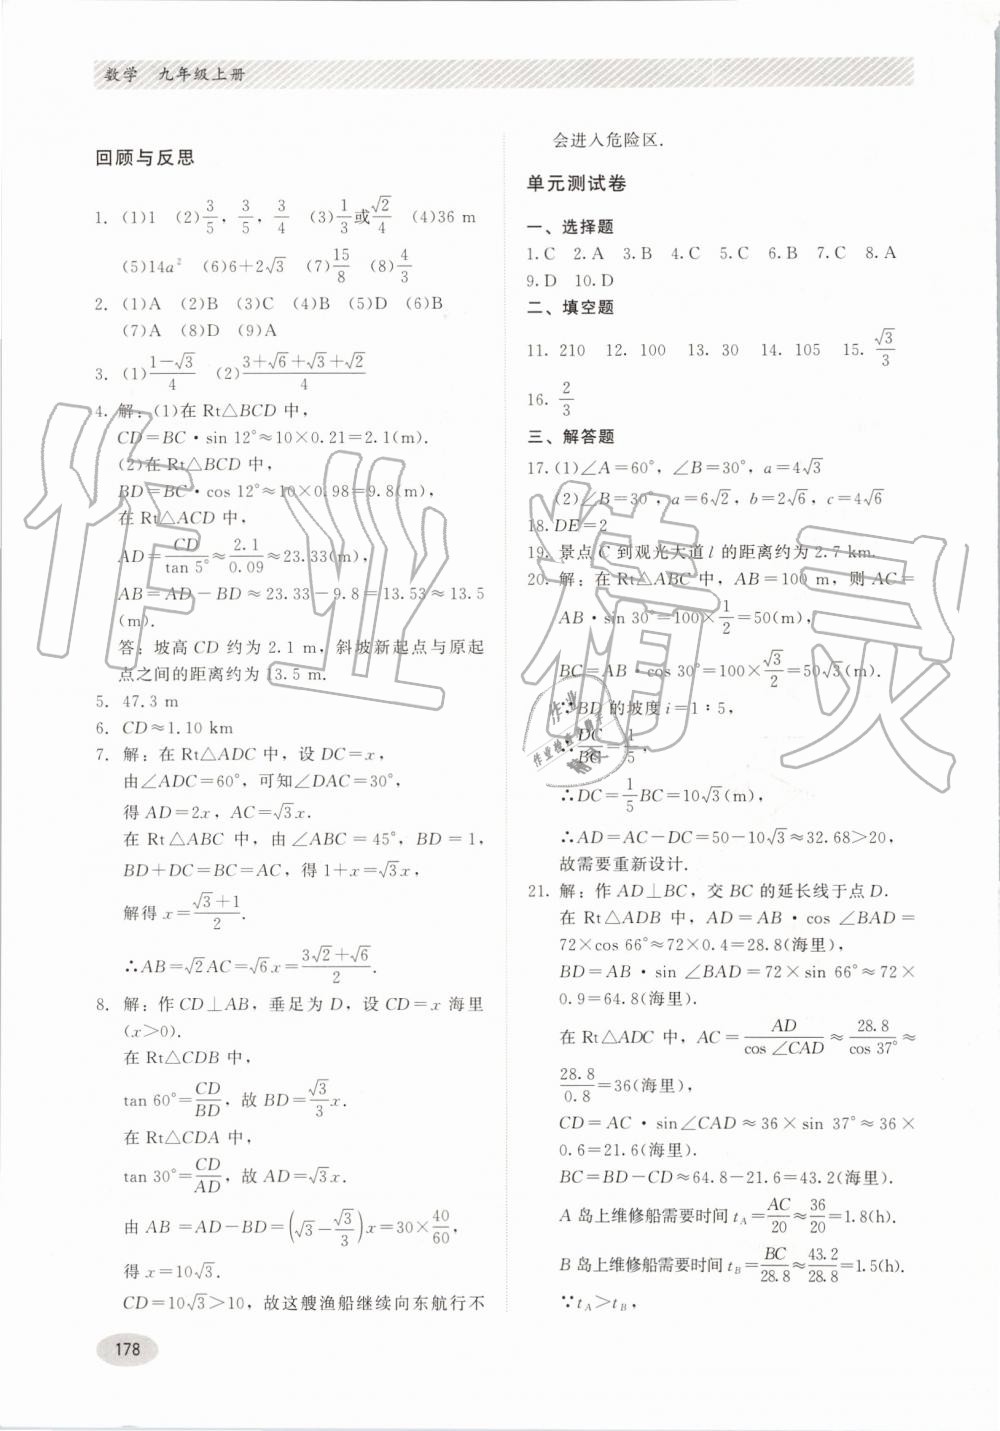 数学 九年级上册
回顾与反思
1. (1)1 (2)3/5, 3/5, 3/4 (3)1/3或√2/4 (4)36 m
(5)14a² (6)6+2√3 (7)15/8 (8)4/3
2. (1)A (2)B (3)C (4)B (5)D (6)B
(7)A (8)D (9)A
3. (1)(1-√3)/4 (2)(3+√6+√3+√2)/4
4. 解:(1)在 Rt△BCD 中,
CD=BC·sin 12°≈10×0.21=2.1(m).
(2)在 Rt△BCD 中,
BD=BC·cos 12°≈10×0.98=9.8(m),
在 Rt△ACD 中,
AD=CD/tan 5°≈2.1/0.09≈23.33(m),
AB=AD-BD≈23.33-9.8=13.53≈13.5
(m).
答:坡高 CD 约为 2.1 m,斜坡新起点与原起
点之间的距离约为 13.5 m.
5. 47.3 m
6. CD≈1.10 km
7. 解:在 Rt△ADC 中,设 DC=x,
由∠ADC=60°,可知∠DAC=30°,
得 AD=2x,AC=√3x.
在 Rt△ABC 中,由∠ABC=45°,BD=1,
BD+DC=BC=AC,得 1+x=√3x,
解得 x=(√3+1)/2.
∴AB=√2AC=√6x=(3√2+√6)/2.
8. 解:作 CD⊥AB,垂足为 D,设 CD=x 海里
(x>0).
在 Rt△CDB 中,
tan 60°=CD/BD,故 BD=√3/3x.
在 Rt△CDA 中,
tan 30°=CD/AD,故 AD=√3x.
由 AB=AD-BD=(√3-√3/3)x=30×40/60,
得 x=10√3.
CD=10√3>10,故这艘渔船继续向东航行不
178
会进入危险区.
单元测试卷
一、选择题
1.C 2.A 3.B 4.C 5.C 6.B 7.C 8.A
9.D 10.D
二、填空题
11. 210 12. 100 13. 30 14. 105 15. √3/3
16. 2/3
三、解答题
17. (1)∠A=60°,∠B=30°,a=4√3
(2)∠B=30°,a=6√2,b=2√6,c=4√6
18. DE=2
19. 景点 C 到观光大道 l 的距离约为 2.7 km.
20. 解:在 Rt△ABC 中,AB=100 m,则 AC=
AB·sin 30°=100×1/2=50(m),
BC=AB·cos 30°=100×√3/2=50√3(m).
∵BD 的坡度 i=1∶5,
∴DC/BC=1/5,
∴DC=1/5BC=10√3(m),
∴AD=AC-DC=50-10√3≈32.68>20,
故需要重新设计.
21. 解:作 AD⊥BC,交 BC 的延长线于点 D.
在 Rt△ADB 中,AD=AB·cos∠BAD=
72×cos 66°≈72×0.4=28.8(海里),
BD=AB·sin∠BAD=72×sin 66°≈72×
0.9=64.8(海里).
在 Rt△ADC 中,AC=AD/cos∠CAD≈28.8/cos 37°≈
28.8/0.8=36(海里),
CD=AC·sin∠CAD≈36×sin 37°≈36×
0.6=21.6(海里).
BC=BD-CD≈64.8-21.6=43.2(海里).
A 岛上维修船需要时间 t_A=AC/20≈36/20=1.8(h).
B 岛上维修船需要时间 t_B=BC/28.8≈43.2/28.8=1.5(h).
∵t_A>t_B,
作业精灵